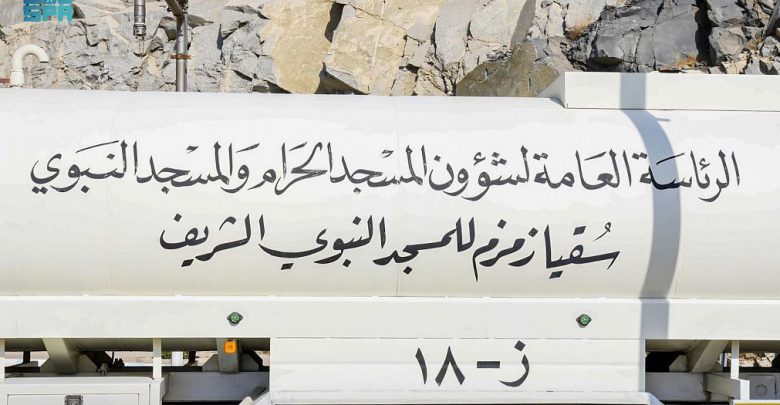 SPA
الرئاسة العامة لشؤون المسجد الحرام والمسجد النبوي
سقيا زمزم للمسجد النبوي الشريف
ز - ١٨